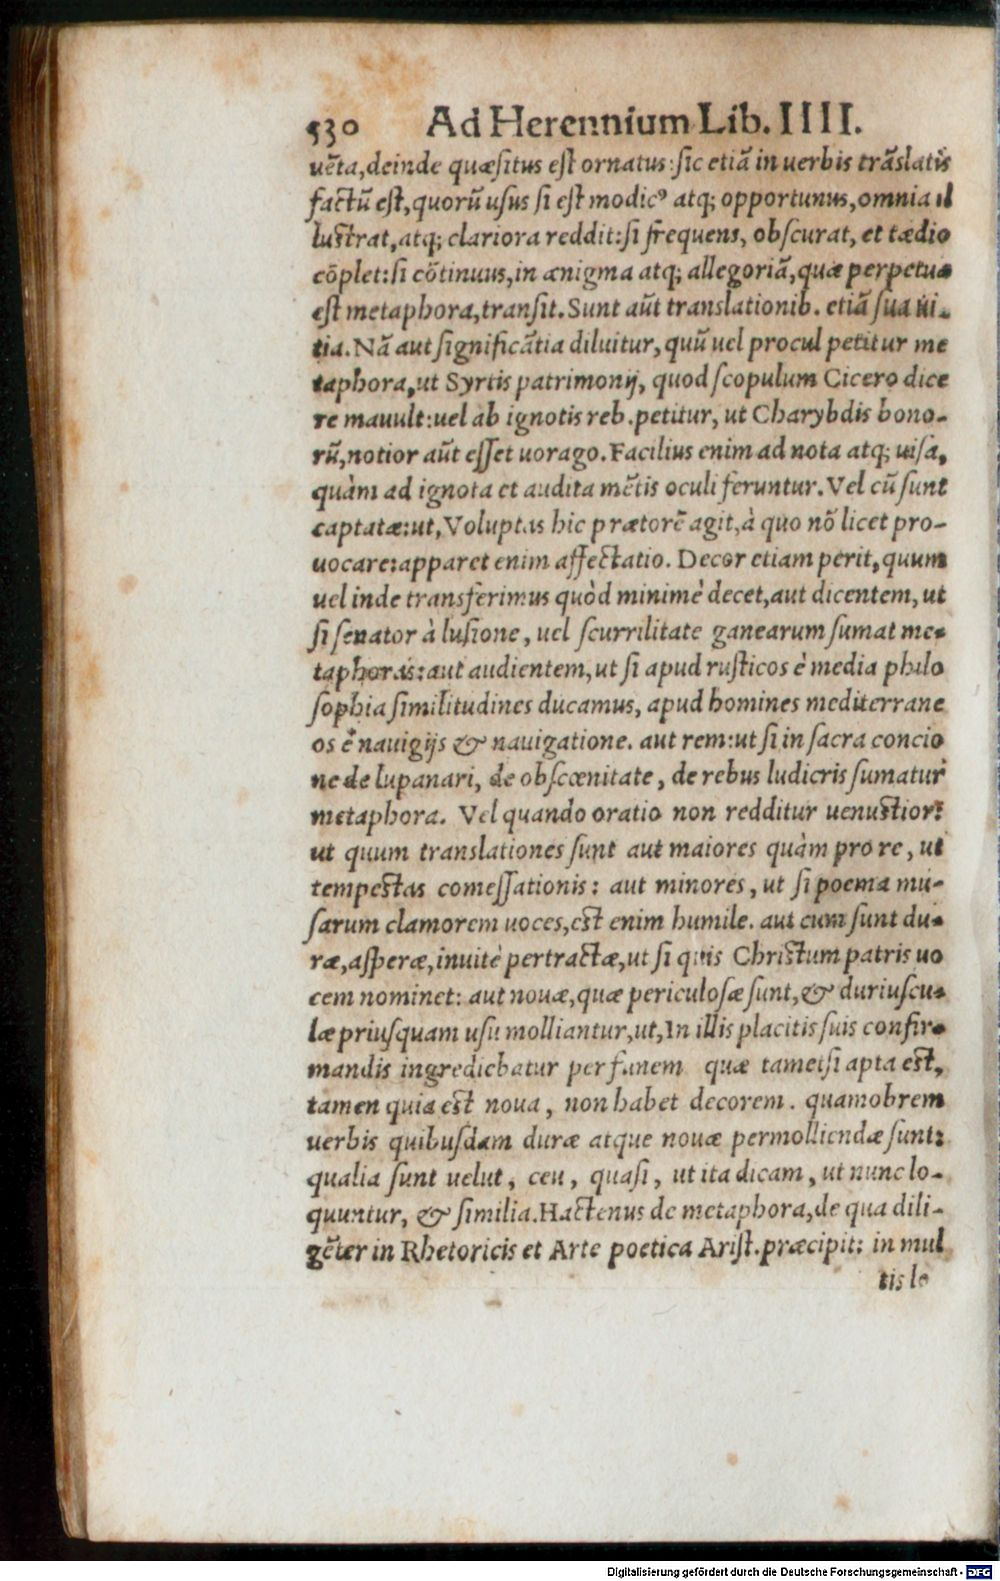 530 Ad Herennium Lib. IIII.
uẽta, deinde quæsitus est ornatus: sic etiã in uerbis trãslatis
factũ est, quorũ usus si est modicꝰ atq; opportunus, omnia il
lustrat, atq; clariora reddit: si frequens, obscurat, et tædio
cõplet: si cõtinuus, in ænigma atq; allegoriã, quæ perpetua
est metaphora, transit. Sunt aũt translationib. etiã sua ui-
tia. Nã aut significãtia diluitur, quũ uel procul petitur me
taphora, ut Syrtis patrimonij, quod scopulum Cicero dice
re mauult: uel ab ignotis reb. petitur, ut Charybdis bono-
rũ, notior aũt esset uorago. Facilius enim ad nota atq; uisa,
quàm ad ignota et audita mẽtis oculi feruntur. Vel cũ sunt
captatæ: ut, Voluptas hic prætorẽ agit, à quo nõ licet pro-
uocare: apparet enim affectatio. Decor etiam perit, quum
uel inde transferimus quòd minimè decet, aut dicentem, ut
si senator à lusione, uel scurrilitate ganearum sumat me-
taphoras: aut audientem, ut si apud rusticos è media philo
sophia similitudines ducamus, apud homines mediterrane
os è nauigijs & nauigatione. aut rem: ut si in sacra concio
ne de lupanari, de obscœnitate, de rebus ludicris sumatur
metaphora. Vel quando oratio non redditur uenustior:
ut quum translationes sunt aut maiores quàm pro re, ut
tempestas comessationis: aut minores, ut si poema mu-
sarum clamorem uoces, est enim humile. aut cum sunt du-
ræ, asperæ, inuitè pertractæ, ut si quis Christum patris uo
cem nominet: aut nouæ, quæ periculosæ sunt, & duriuscu-
læ priusquam usu molliantur, ut, In illis placitis suis confir-
mandis ingrediebatur per funem quæ tametsi apta est,
tamen quia est noua, non habet decorem. quamobrem
uerbis quibusdam duræ atque nouæ permolliendæ sunt:
qualia sunt uelut, ceu, quasi, ut ita dicam, ut nunc lo-
quuntur, & similia. Hactenus de metaphora, de qua dili-
gẽter in Rhetoricis et Arte poetica Arist. præcipit: in mul
tis lo
Digitalisierung gefördert durch die Deutsche Forschungsgemeinschaft - DFG